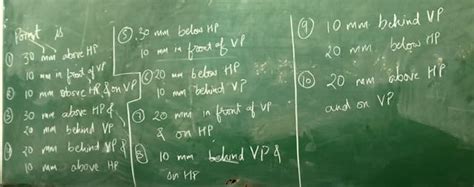 Point is
① 30 mm above HP
10 mm in front of VP
② 10 mm above HP & on VP
③ 30 mm above HP &
20 mm behind VP
④ 20 mm behind VP &
10 mm above HP
⑤ 30 mm below HP
10 mm in front of VP
⑥ 20 mm below HP
10 mm behind VP
⑦ 20 mm in front of VP
& on HP
⑧ 10 mm behind VP &
on HP
⑨ 10 mm behind VP
20 mm below HP
⑩ 20 mm above HP
and on VP